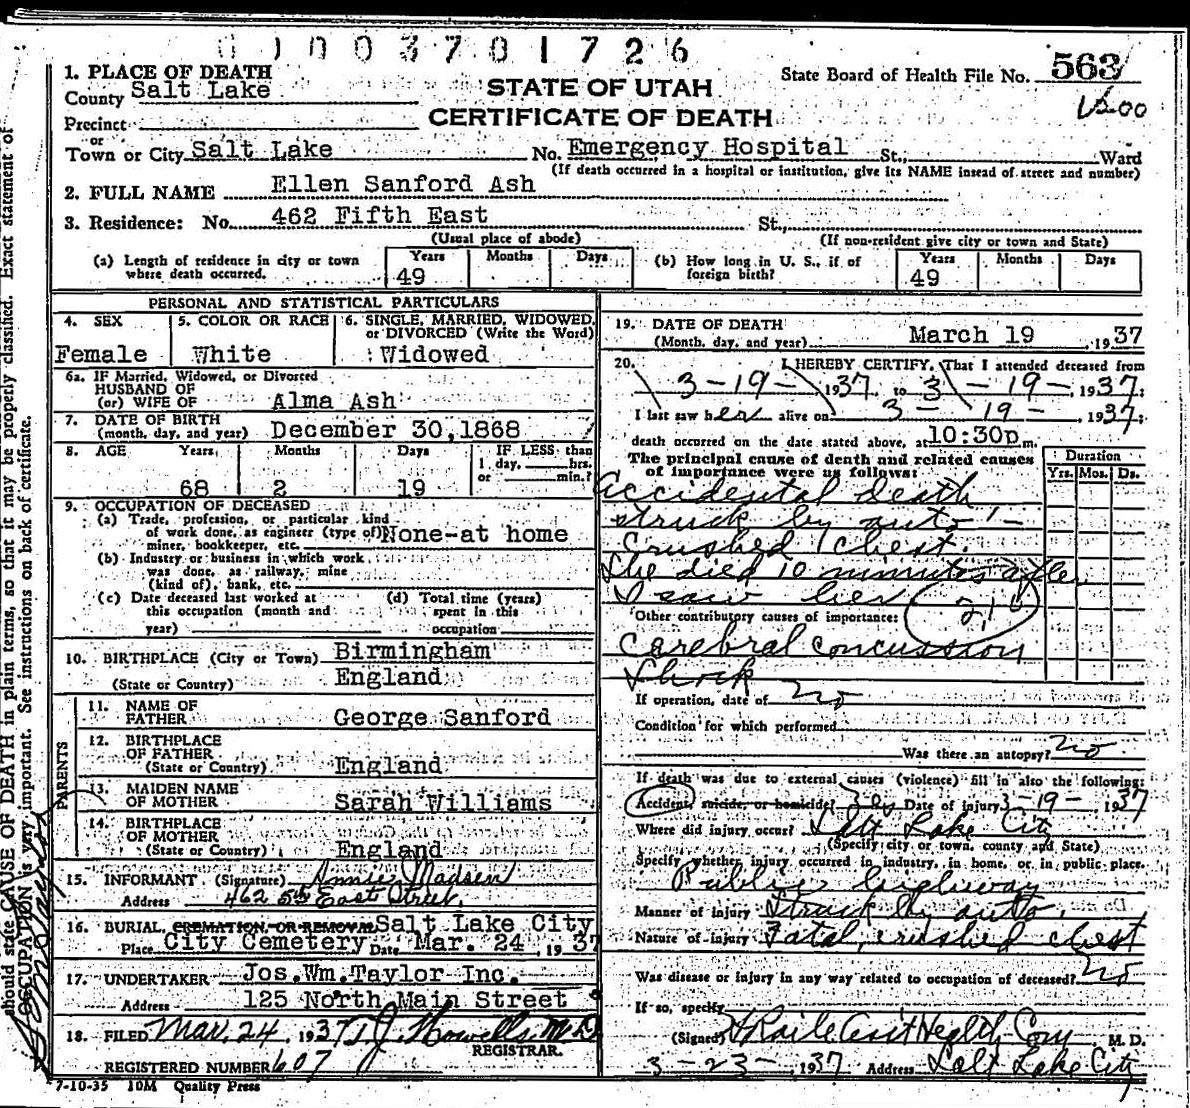 0 1 0 0 3 7 0 1 7 2 6
State Board of Health File No. 563
1. PLACE OF DEATH
County Salt Lake
STATE OF UTAH
CERTIFICATE OF DEATH
Precinct
or
Town or City Salt Lake No. Emergency Hospital St., Ward
(If death occurred in a hospital or institution, give its NAME insead of street and number)
2. FULL NAME Ellen Sanford Ash
3. Residence: No. 462 Fifth East St.,
(Usual place of abode) (If non-resident give city or town and State)
(a) Length of residence in city or town where death occurred. Years 49 Months Days (b) How long in U. S., if of foreign birth? Years 49 Months Days
PERSONAL AND STATISTICAL PARTICULARS
4. SEX Female
5. COLOR OR RACE White
6. SINGLE, MARRIED, WIDOWED, or DIVORCED (Write the Word) Widowed
6a. IF Married, Widowed, or Divorced
HUSBAND OF
(or) WIFE OF Alma Ash
7. DATE OF BIRTH
(month, day, and year) December 30,1868
8. AGE Years 68 Months 2 Days 19 IF LESS than 1 day, hrs. or min.?
9. OCCUPATION OF DECEASED
(a) Trade, profession, or particular kind of work done, as engineer (type of) miner, bookkeeper, etc. None-at home
(b) Industry or business in which work was done, as railway, mine (kind of), bank, etc.
(c) Date deceased last worked at this occupation (month and year)
(d) Total time (years) spent in this occupation
10. BIRTHPLACE (City or Town) Birmingham
(State or Country) England
PARENTS
11. NAME OF FATHER George Sanford
12. BIRTHPLACE OF FATHER
(State or Country) England
13. MAIDEN NAME OF MOTHER Sarah Williams
14. BIRTHPLACE OF MOTHER
(State or Country) England
15. INFORMANT (Signature) Annie Madsen
Address 462 5th East Street.
16. BURIAL, CREMATION, OR REMOVAL Salt Lake City
Place City Cemetery Date Mar. 24, 1937
17. UNDERTAKER Jos.Wm.Taylor Inc.
Address 125 North Main Street
18. FILED Mar. 24, 1937 T.J. Howells M.D.
REGISTRAR.
REGISTERED NUMBER 607
7-10-35 10M Quality Press
19. DATE OF DEATH
(Month, day, and year) March 19, 1937
20. I HEREBY CERTIFY, That I attended deceased from
3-19-, 1937, to 3-19-, 1937;
I last saw her alive on 3-19-, 1937;
death occurred on the date stated above, at 10:30p.m.
The principal cause of death and related causes of importance were as follows:
Duration
Yrs. Mos. Ds.
Accidental death
struck by auto -
Crushed chest.
She died 10 minutes after
I saw her
Other contributory causes of importance:
Cerebral concussion
Shock
If operation, date of no
Condition for which performed
Was there an autopsy? no
If death was due to external causes (violence) fill in also the following:
Accident, suicide, or homicide? Date of injury 3-19-, 1937
Where did injury occur? Salt Lake City
(Specify city or town, county and State)
Specify whether injury occurred in industry, in home, or in public place.
Public highway
Manner of injury Struck by auto.
Nature of injury Fatal, crushed chest
Was disease or injury in any way related to occupation of deceased? no
If so, specify
(Signed) M. D.
3-23-, 1937 Address Salt Lake City
should state CAUSE OF DEATH in plain terms, so that it may be properly classified. Exact statement of
OCCUPATION is very important. See instructions on back of certificate.